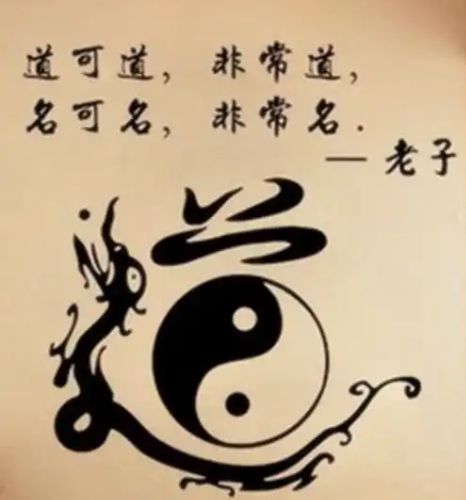 道可道，非常道，
名可名，非常名．
— 老子
道